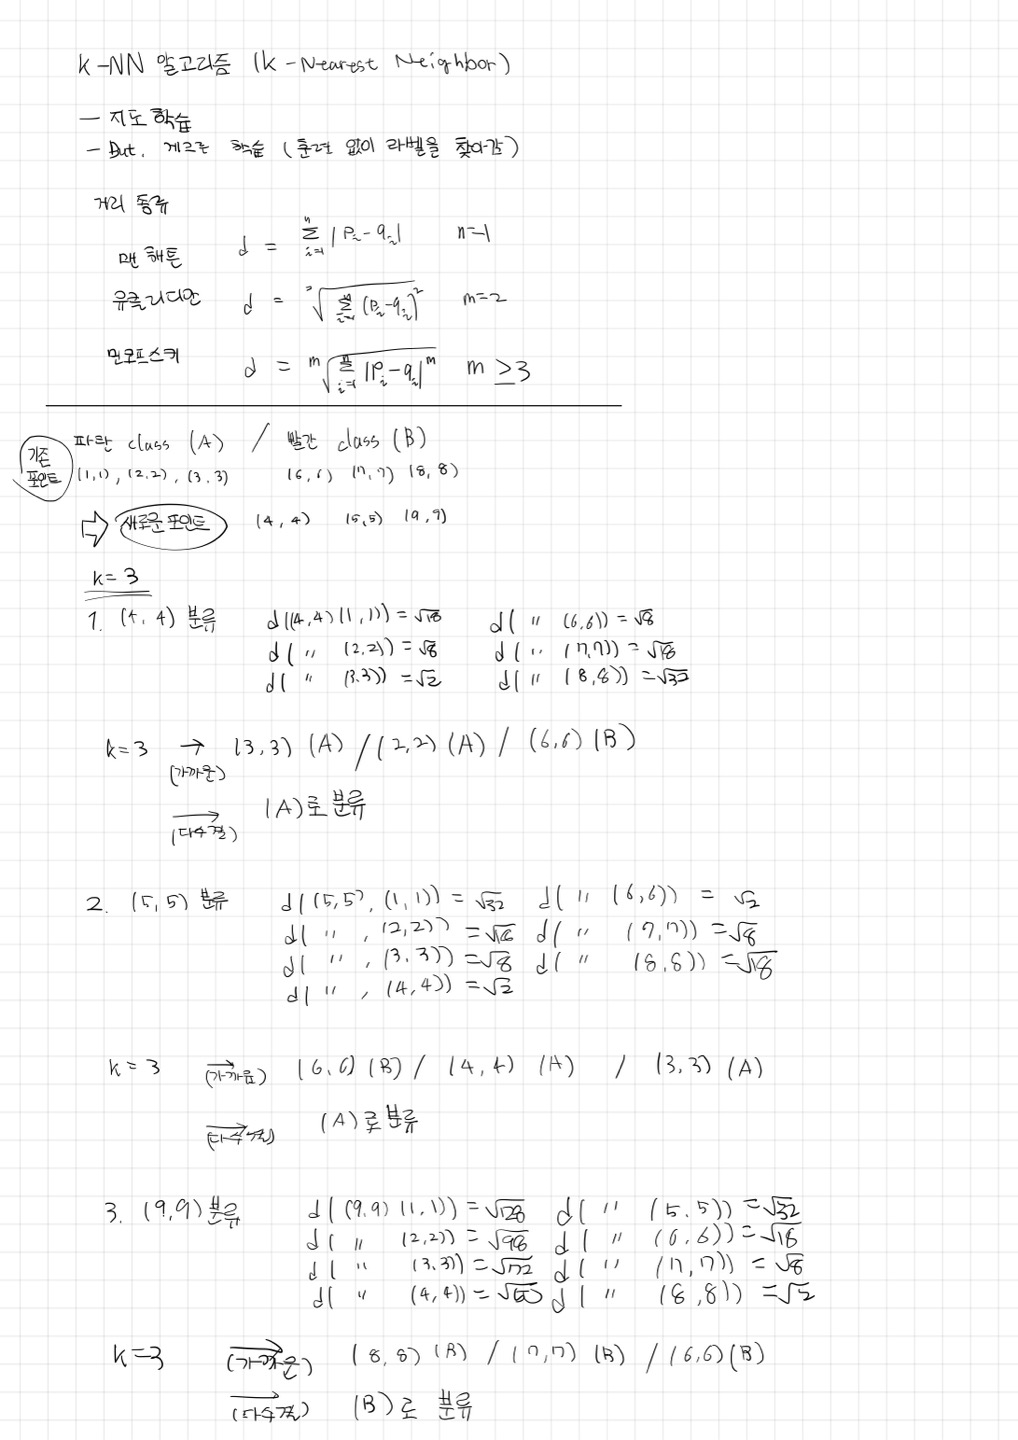 k-NN 알고리즘 (k-Nearest Neighbor)
- 지도 학습
- But, 게으른 학습 (훈련 없이 라벨을 찾아감)
거리 종류
맨해튼 d = Σ_{i=1}^{n} |p_i - q_i| n=1
유클리디안 d = ²√(Σ_{i=1}^{n} (p_i - q_i)²) m=2
민코프스키 d = ᵐ√(Σ_{i=1}^{n} |p_i - q_i|ᵐ) m ≥ 3
기존 포인트
파란 class (A) / 빨간 class (B)
(1,1), (2,2), (3,3) (6,6) (7,7) (8,8)
⇨ 새로운 포인트 (4,4) (5,5) (9,9)
k=3
1. (4,4) 분류 d((4,4)(1,1)) = √18 d( " (6,6)) = √8
d( " (2,2)) = √8 d( " (7,7)) = √18
d( " (3,3)) = √2 d( " (8,8)) = √32
k=3 → (가까운) (3,3) (A) / (2,2) (A) / (6,6) (B)
→ (다수결) (A)로 분류
2. (5,5) 분류 d((5,5), (1,1)) = √32 d( " (6,6)) = √2
d( " , (2,2)) = √18 d( " (7,7)) = √8
d( " , (3,3)) = √8 d( " (8,8)) = √18
d( " , (4,4)) = √2
k=3 → (가까운) (6,6) (B) / (4,4) (A) / (3,3) (A)
→ (다수결) (A)로 분류
3. (9,9) 분류 d((9,9) (1,1)) = √128 d( " (5,5)) = √32
d( " (2,2)) = √98 d( " (6,6)) = √18
d( " (3,3)) = √72 d( " (7,7)) = √8
d( " (4,4)) = √50 d( " (8,8)) = √2
k=3 → (가까운) (8,8) (B) / (7,7) (B) / (6,6) (B)
→ (다수결) (B)로 분류